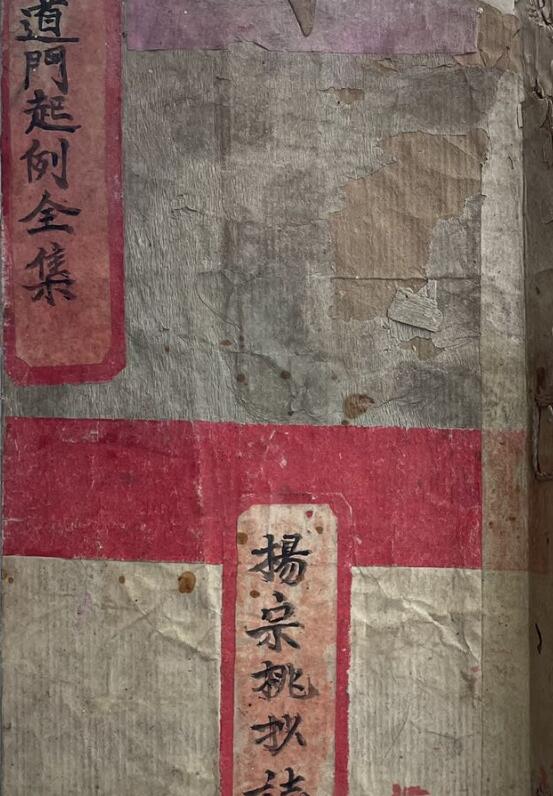 道門起例全集
揚宗桃拟